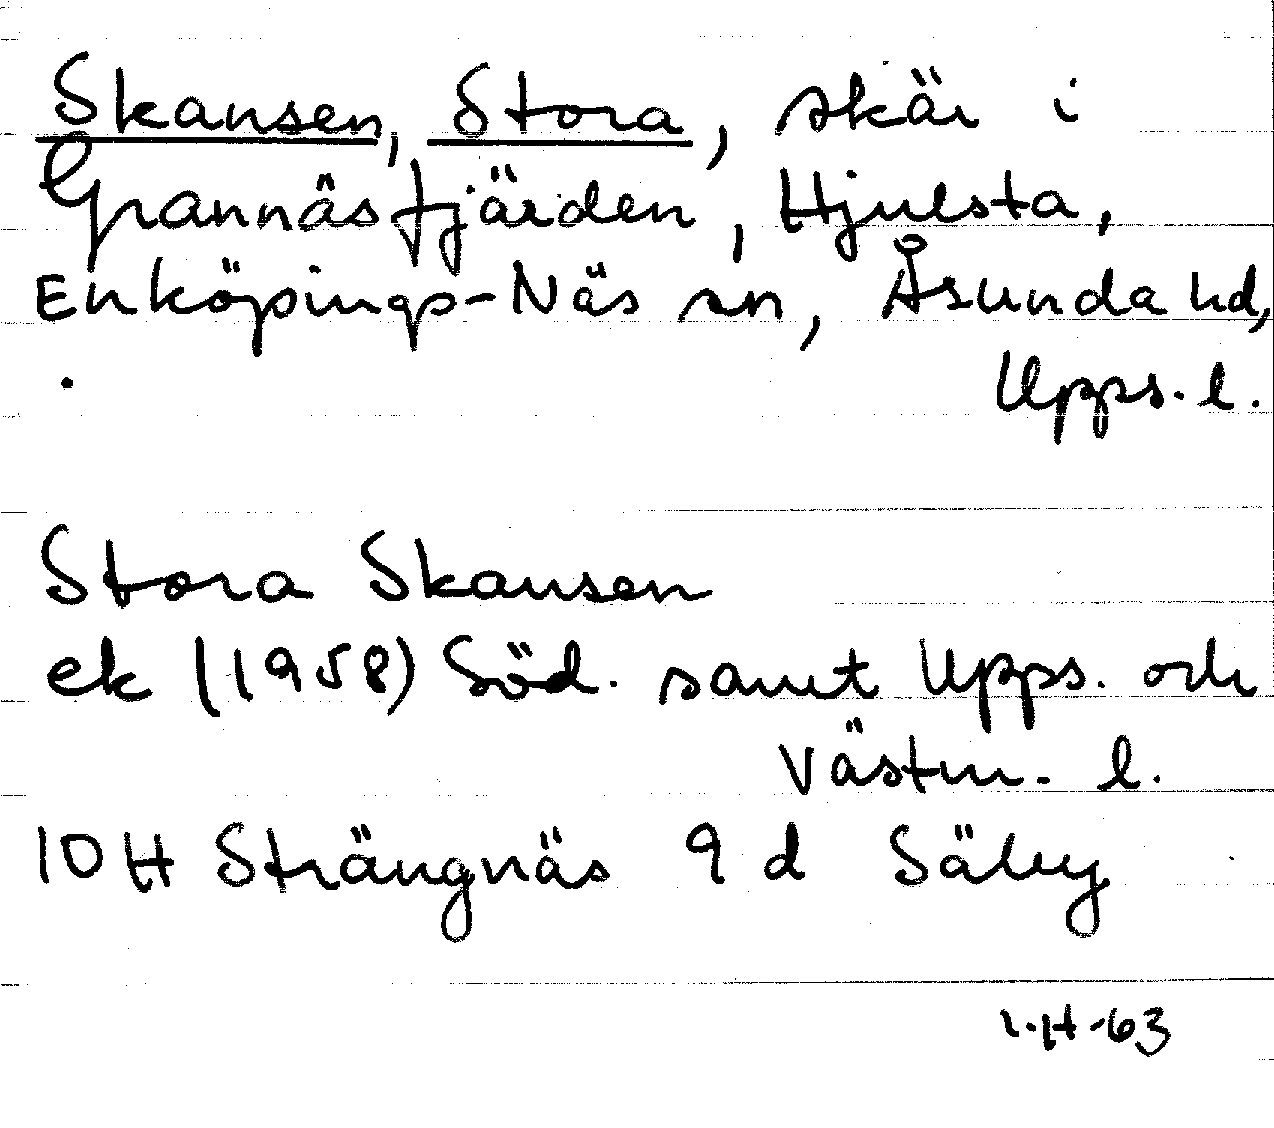 Skansen, Stora, skär i
Grannäsfjärden, Hjulsta,
Enköpings-Näs sn, Åsunda hd,
Upps. l.
Stora Skansen
ek (1958) Söd. samt Upps. och
Västm. l.
10H Strängnäs 9 d Säby
I.H-63